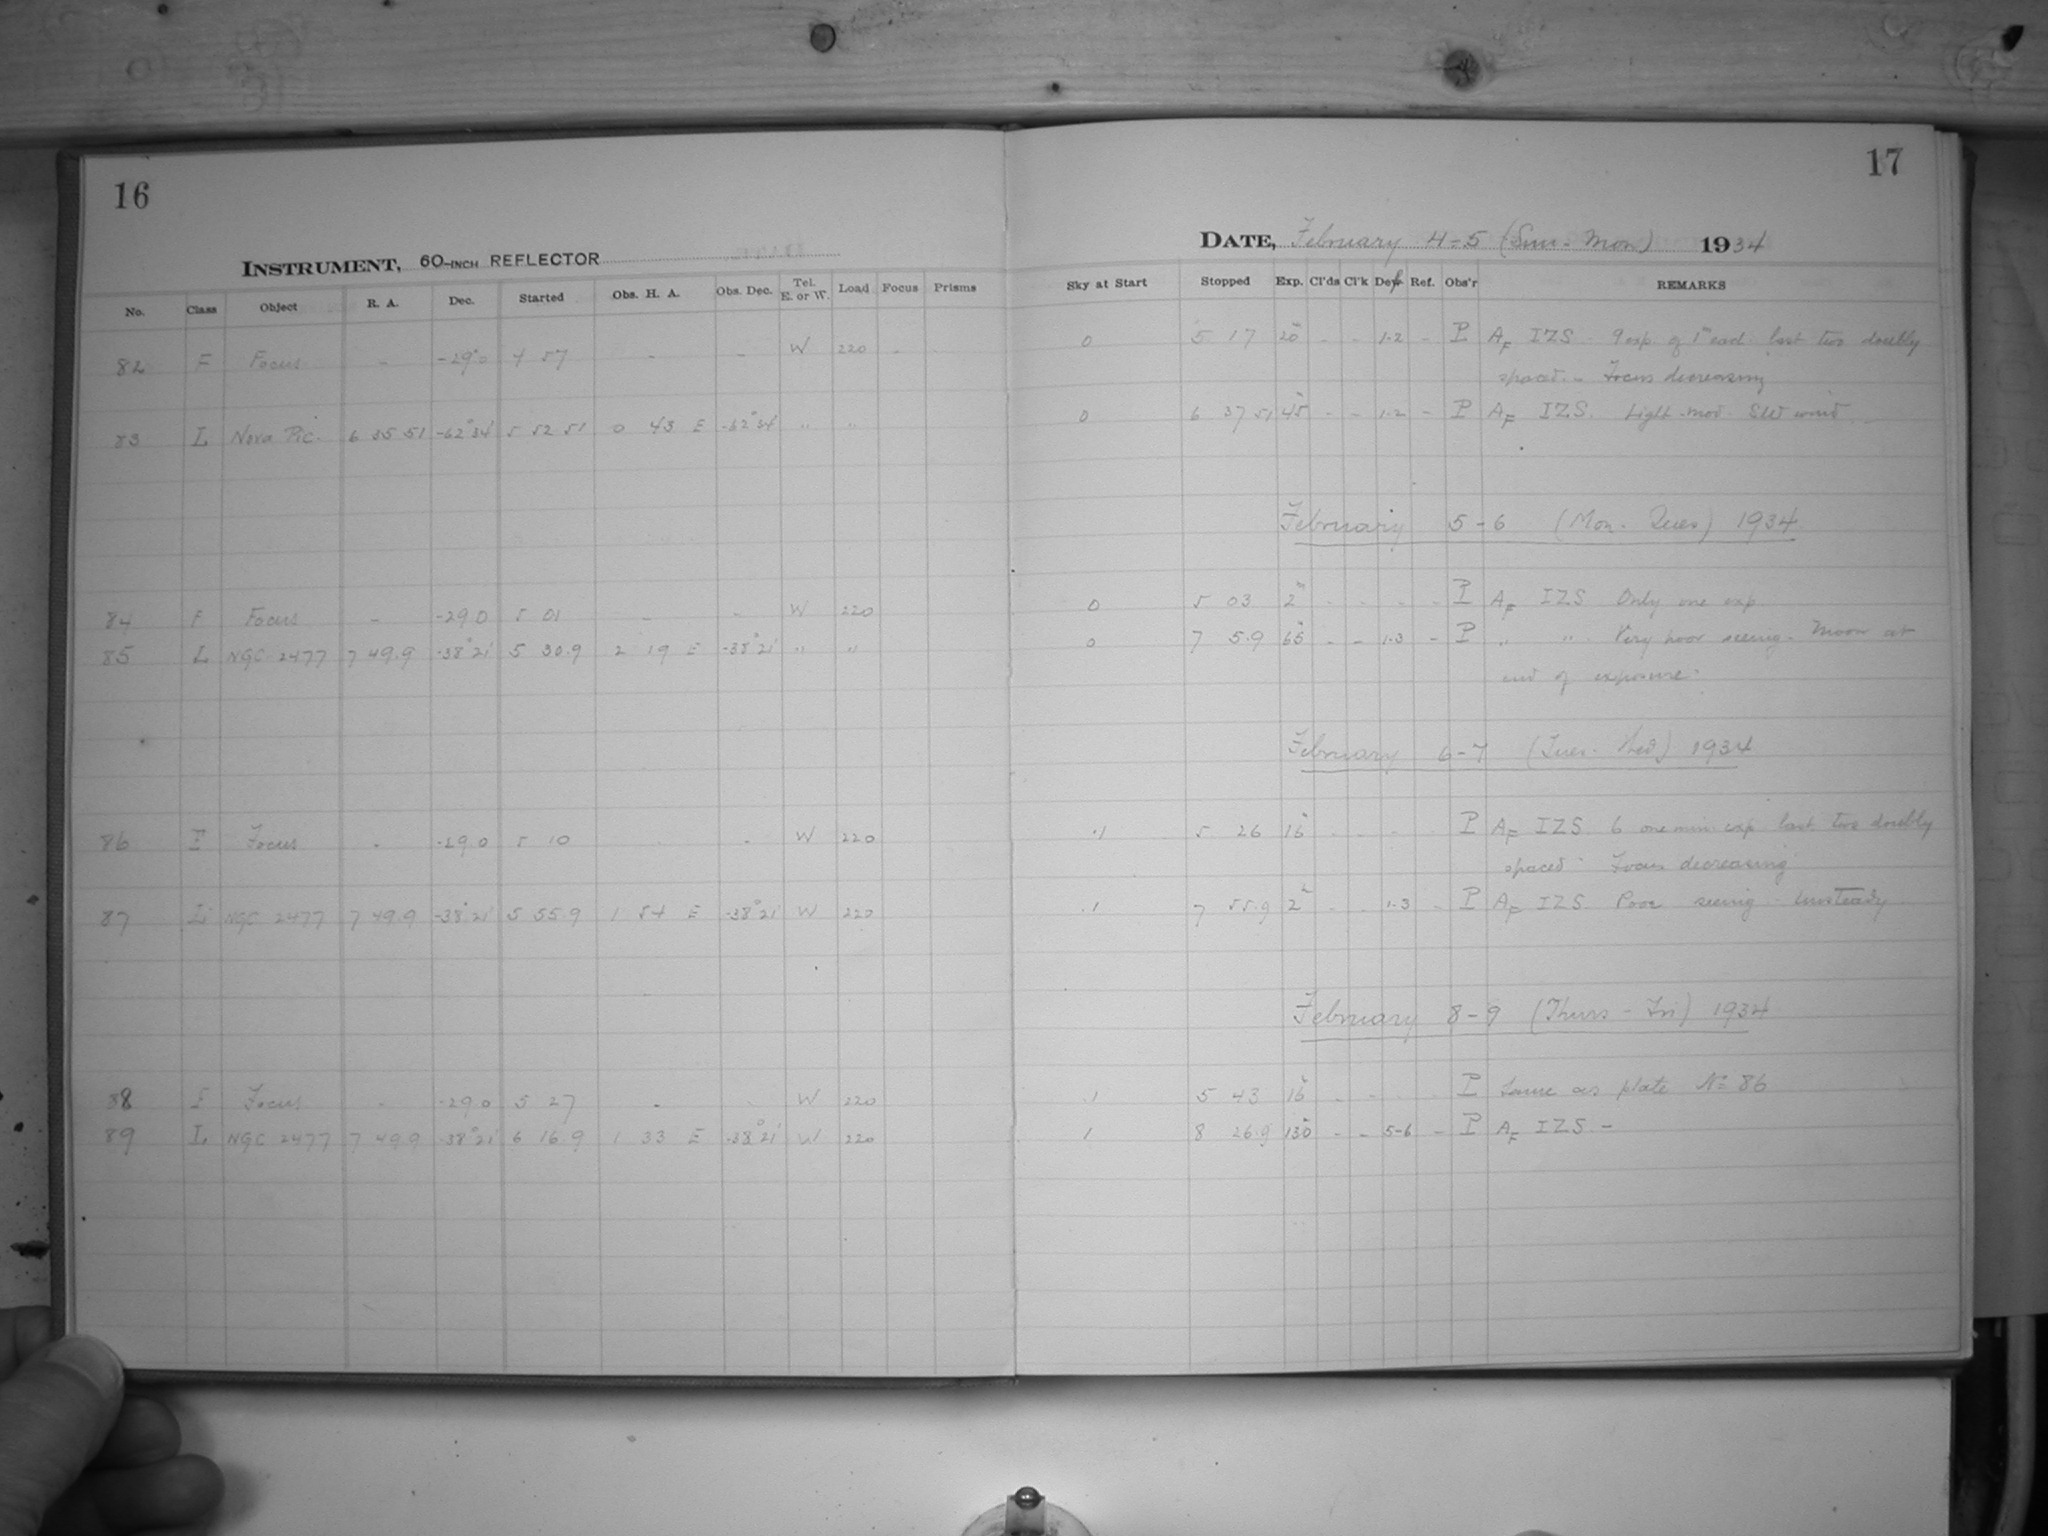 16
INSTRUMENT, 60-INCH REFLECTOR
No. Class Object R. A. Dec. Started Obs. H. A. Obs. Dec. Tel. E. or W. Load Focus Prisms
82 F Focus - -29°0 4 57 - - W 220 -
83 L Nova Pic. 6 35 51 -62°34' 5 52 51 0 43 E -62°34' " "
84 F Focus - -29.0 5 01 - - W 220
85 L NGC 2477 7 49.9 -38°21' 5 30.9 2 19 E -38°21' " "
86 F Focus - -29.0 5 10 - - W 220
87 L NGC 2477 7 49.9 -38°21' 5 55.9 1 54 E -38°21' W 220
88 F Focus - -29.0 5 27 - - W 220
89 L NGC 2477 7 49.9 -38°21' 6 16.9 1 33 E -38°21' W 220
17
DATE, February 4-5 (Sun - Mon) 1934
Sky at Start Stopped Exp. Cl'ds Cl'k Def Ref. Obs'r REMARKS
0 5 17 20m - - 1-2 - P AF IZS - 9 exp. of 1m each last two doubly
spaced. - Focus decreasing
0 6 37 51 45m - - 1-2 - P AF IZS. Light-mod. SW wind
February 5-6 (Mon. Tues) 1934
0 5 03 2m - - - - P AF IZS Only one exp
0 7 5.9 65m - - 1-3 - P " " Very poor seeing - Moon at
end of exposure.
February 6-7 (Tues. Wed) 1934
.1 5 26 16m - - - - P AF IZS 6 one min exp last two doubly
spaced. Focus decreasing
.1 7 55.9 2h - - 1-3 - P AF IZS Poor seeing - Unsteady
February 8-9 (Thurs - Fri) 1934
.1 5 43 16m - - - - P Same as plate No 86
1 8 26.9 130m - - 5-6 - P AF IZS -